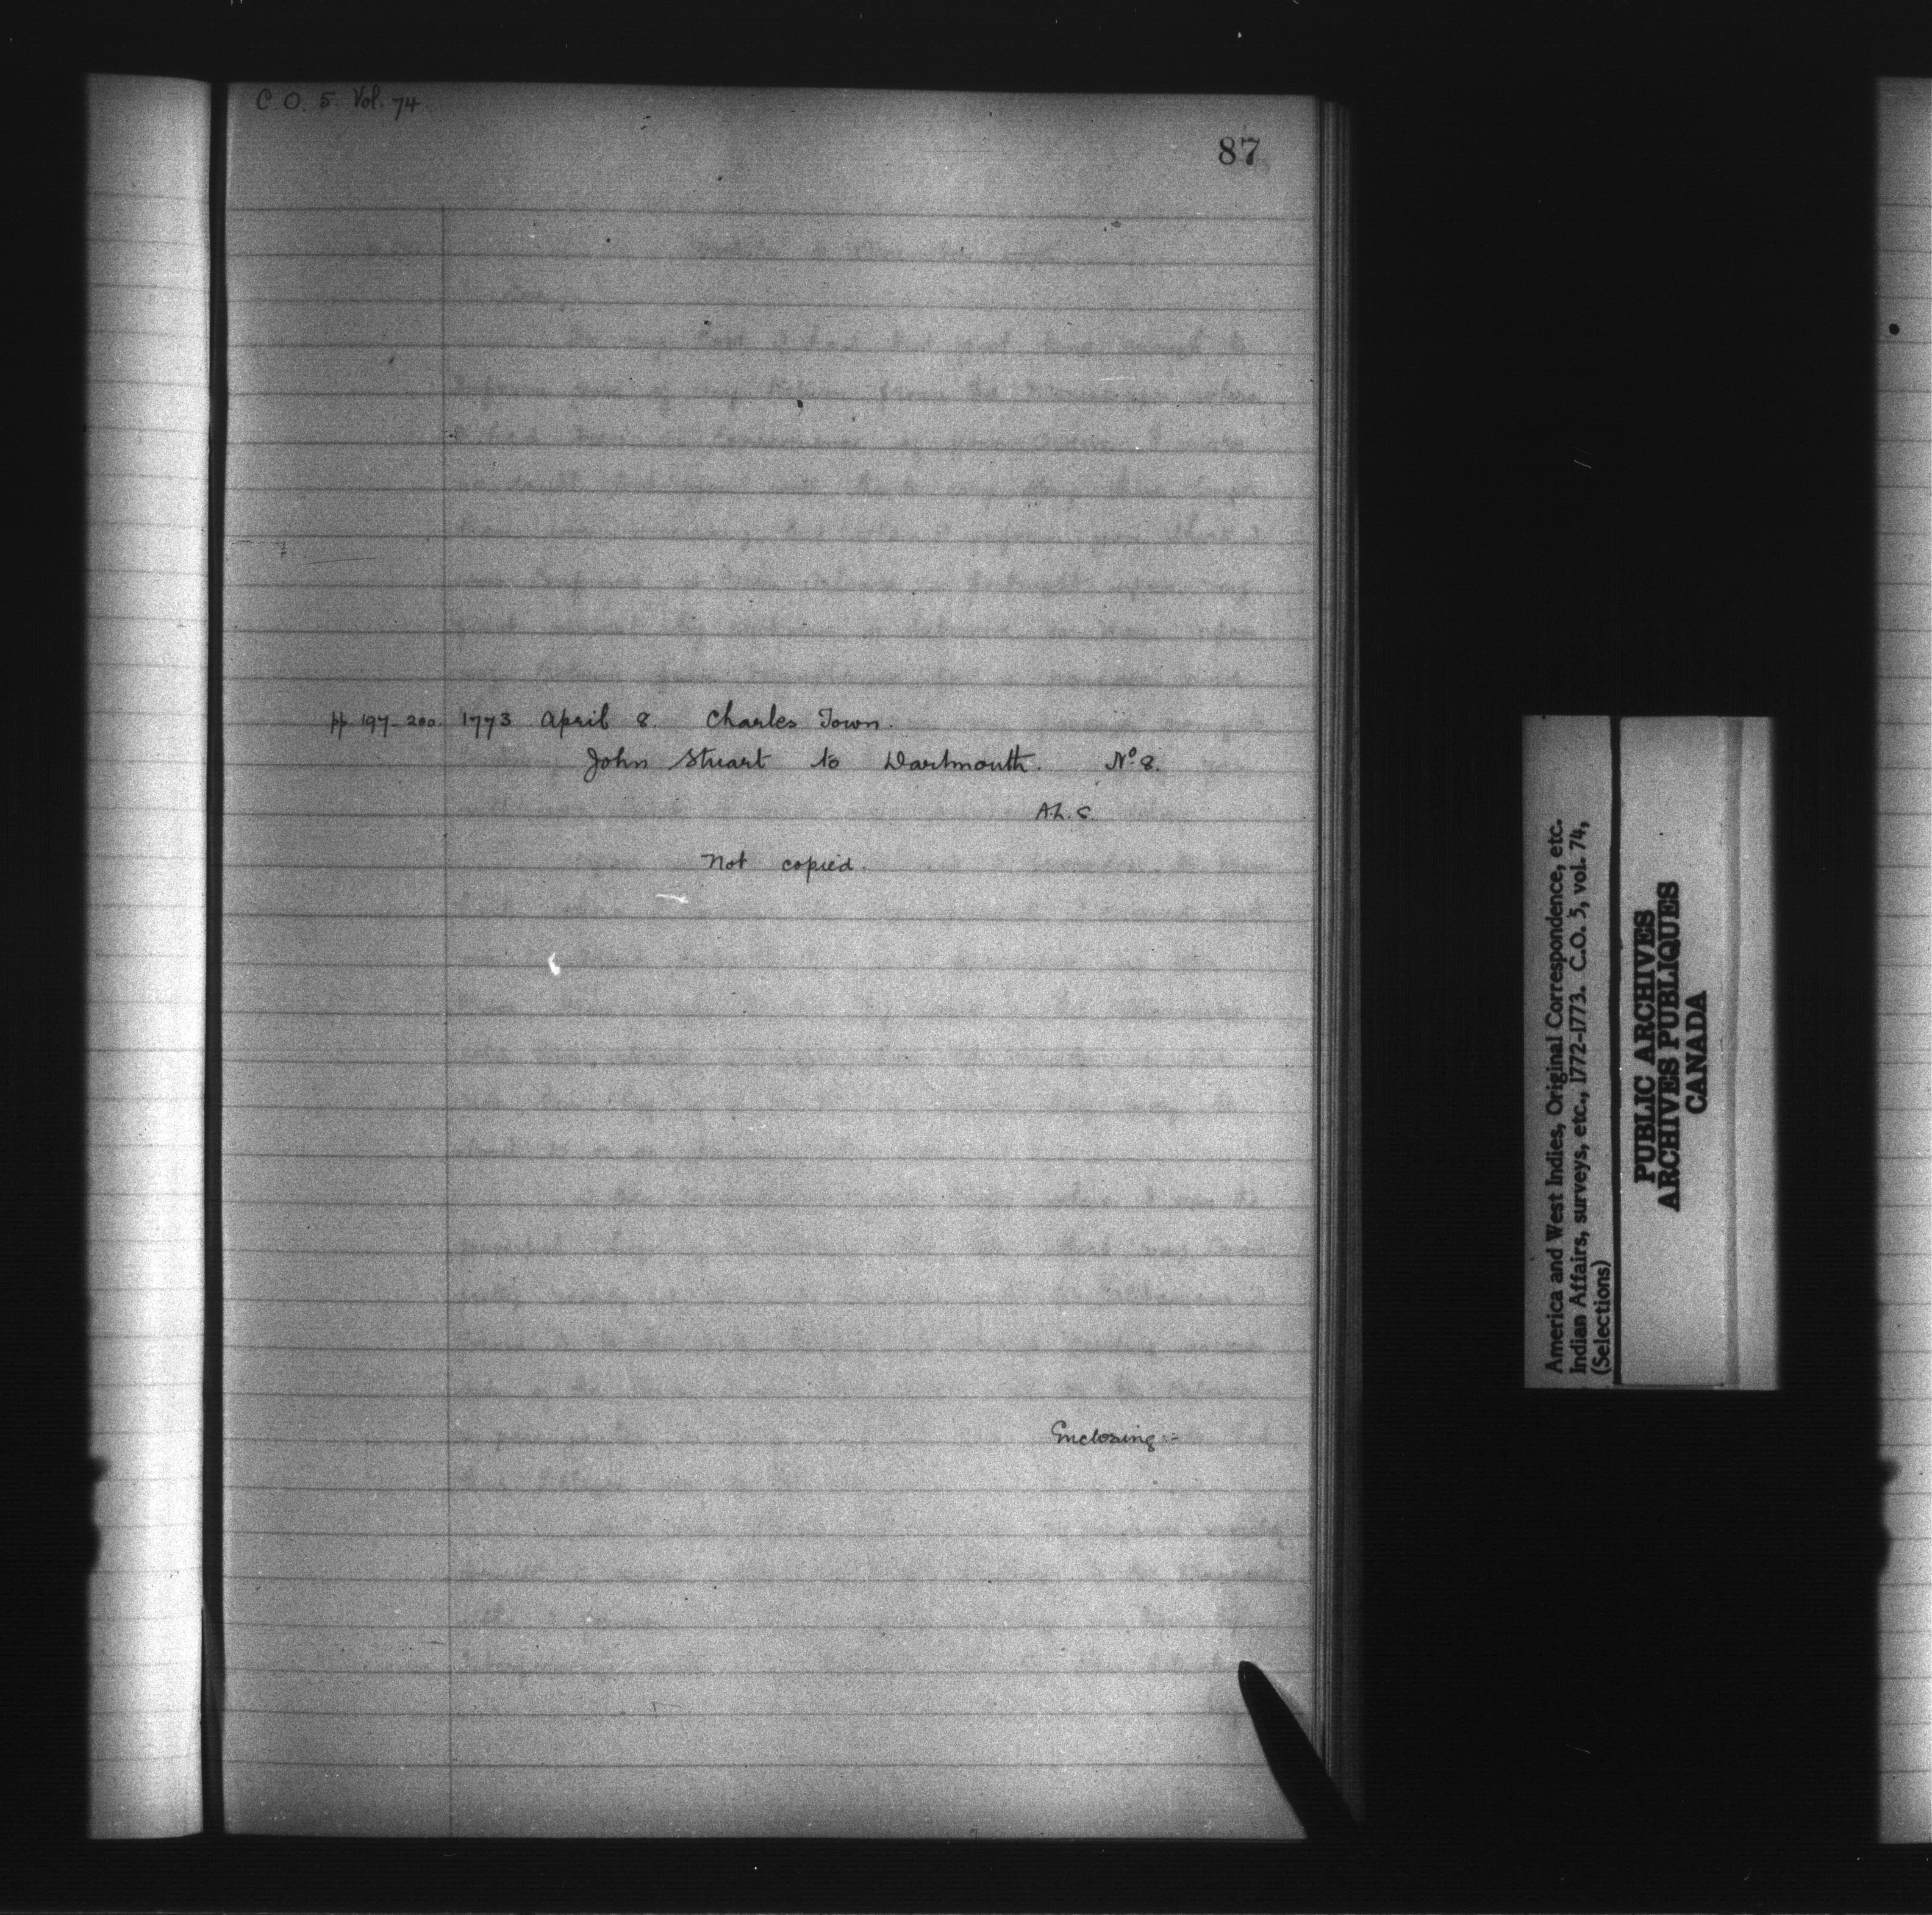 C. O. 5. Vol. 74.
87
pp. 197-200. 1773 April 8. Charles Town.
John Stuart to Dartmouth. Nº 8.
A.L.S.
Not copied.
Enclosing:-
America and West Indies, Original Correspondence, etc.
Indian Affairs, surveys, etc., 1772-1773. C.O. 5, vol. 74,
(Selections)
PUBLIC ARCHIVES
ARCHIVES PUBLIQUES
CANADA